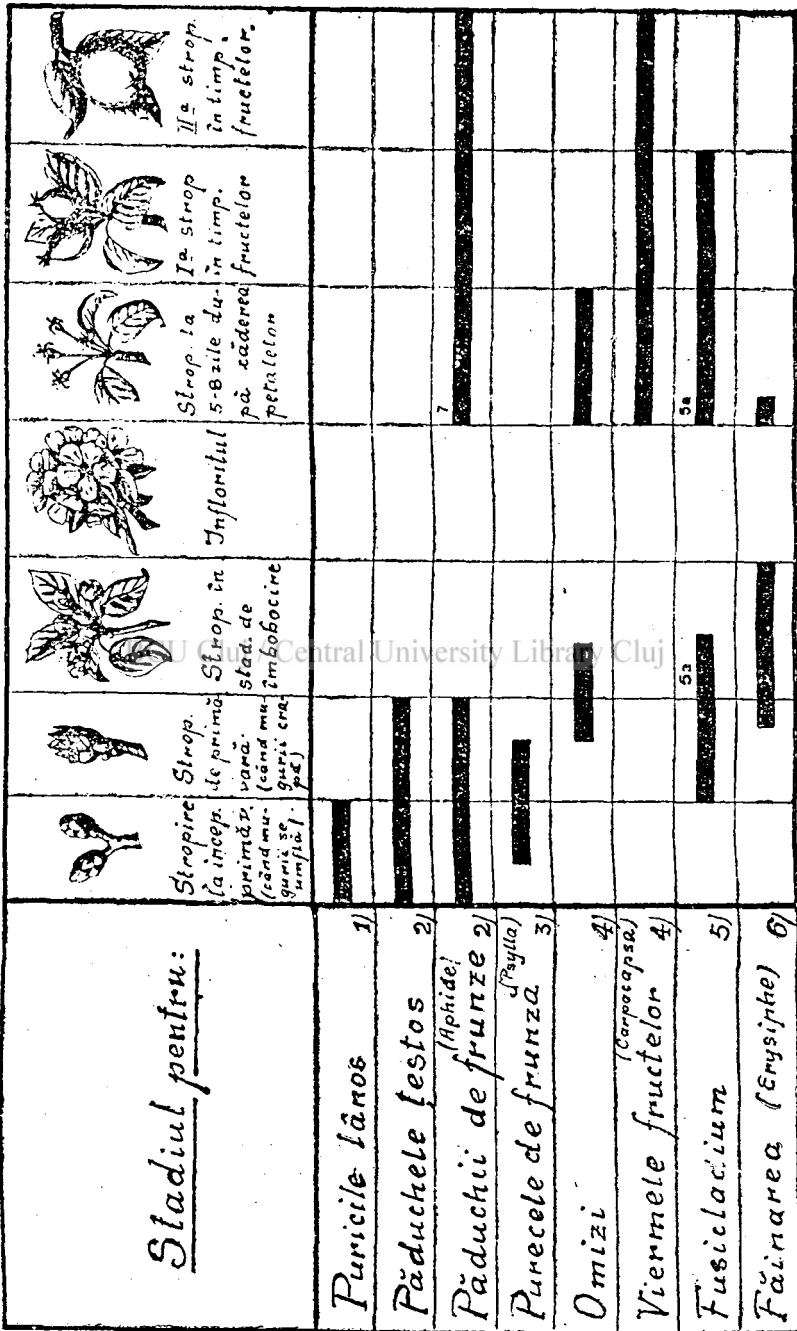 Stadiul pentru:
Stropire
la incep.
primăv.
(când mu-
gurii se
umflă).
Strop.
de primă-
vară.
(când mu-
gurii cra-
pă)
Strop. în
stad. de
îmbobocire
Infloritul
Strop. la
5-8 zile du-
pă căderea
petalelor
Iª strop
în timp.
fructelor
IIª strop.
în timp.
fructelor.
Puricile lânos 1)
Păduchele țestos 2)
Păduchii de frunze (Aphide) 2)
7
Purecele de frunza (Psylla) 3)
Omizi 4)
Viermele fructelor (Carpocapsa) 4)
Fusicladium 5)
5a
5a
Făinarea (Erysiphe) 6)
BCU Cluj / Central University Library Cluj